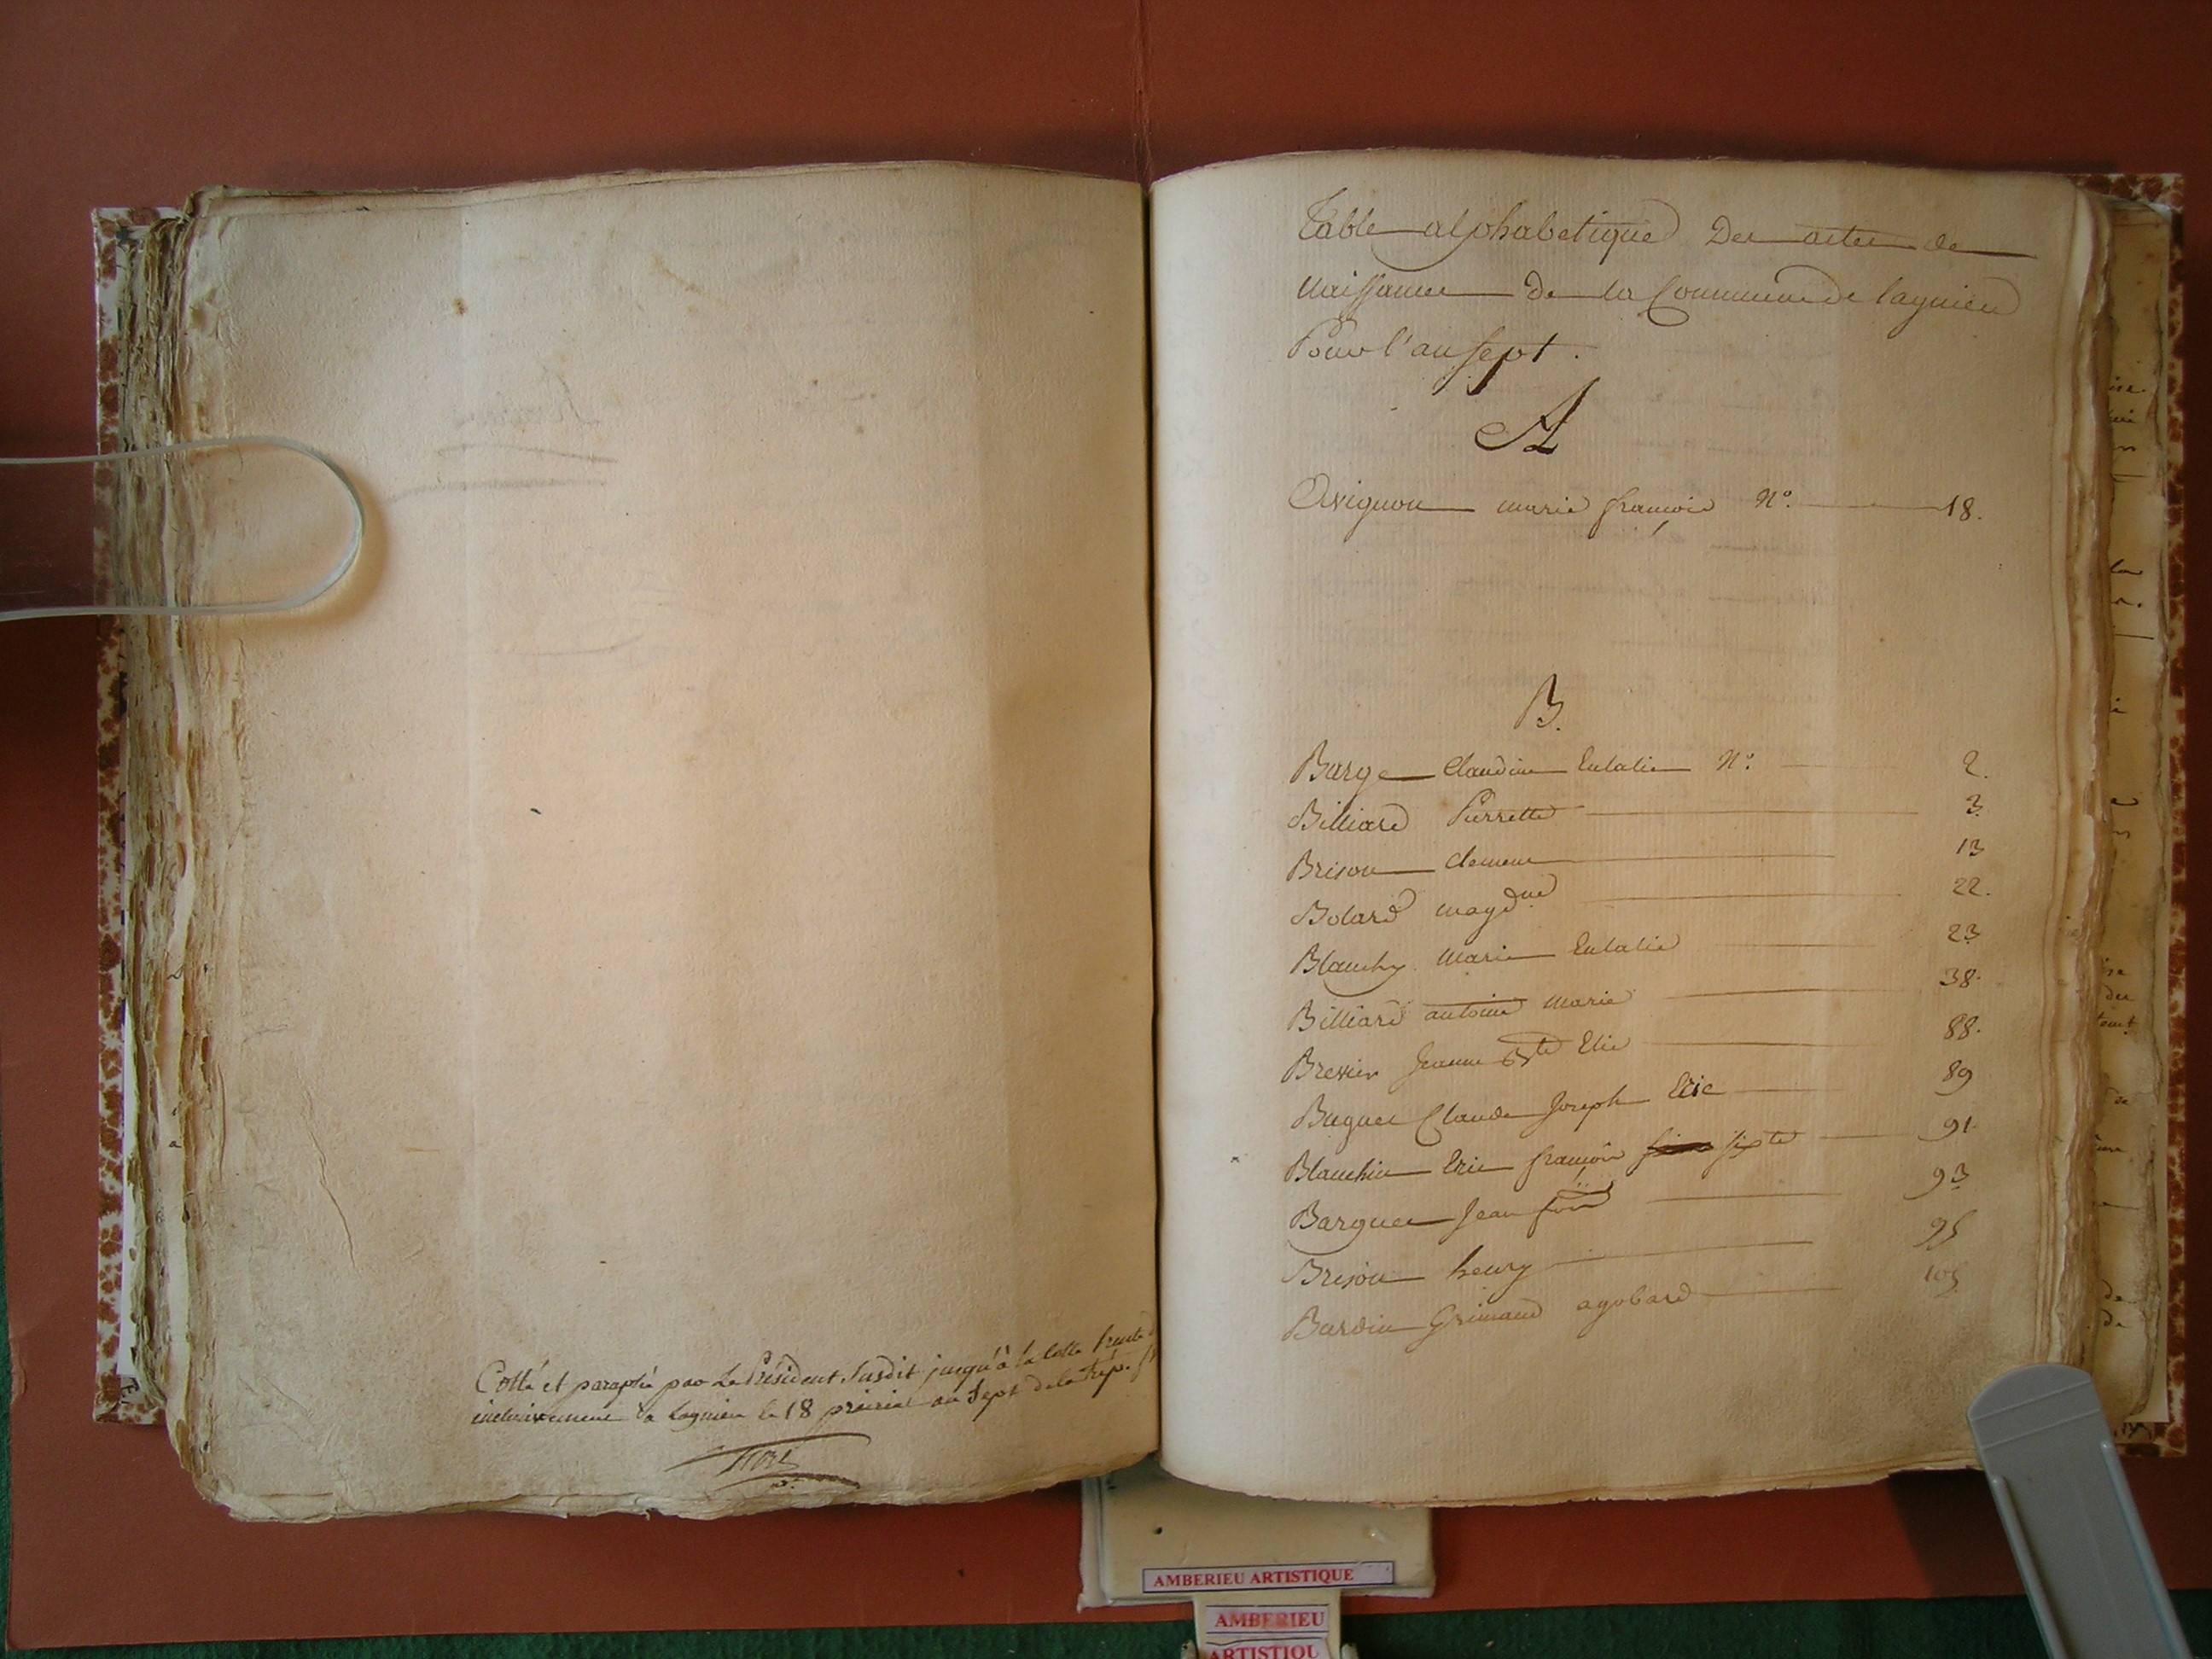 Cotté et paraphé par Le Président susdit jusqu'à la cotte trente
inclusivement a Lagnieu le 18 prairial an sept de la Rép.
Table alphabetique Des actes de
Naissance De la Commune de lagnieu
Pour l'an sept.
A
Avignon marie françois N° 18.
B.
Barge Claudine Eulalie N° 2.
Billiard Pierrette 3.
Brison Clement 13
Bolard magdne 22.
Blanchy Marie Eulalie 23
Billiard antoine marie 38.
Bressier Jeanne Bte Elie 88.
Buguet Claude Joseph Elie 89
Blanchin Elie françois sixte 91.
Barguet Jean 93
Brison henry 95
Bardin Grimaud agobard 105
AMBERIEU ARTISTIQUE
AMBERIEU
ARTISTIQU